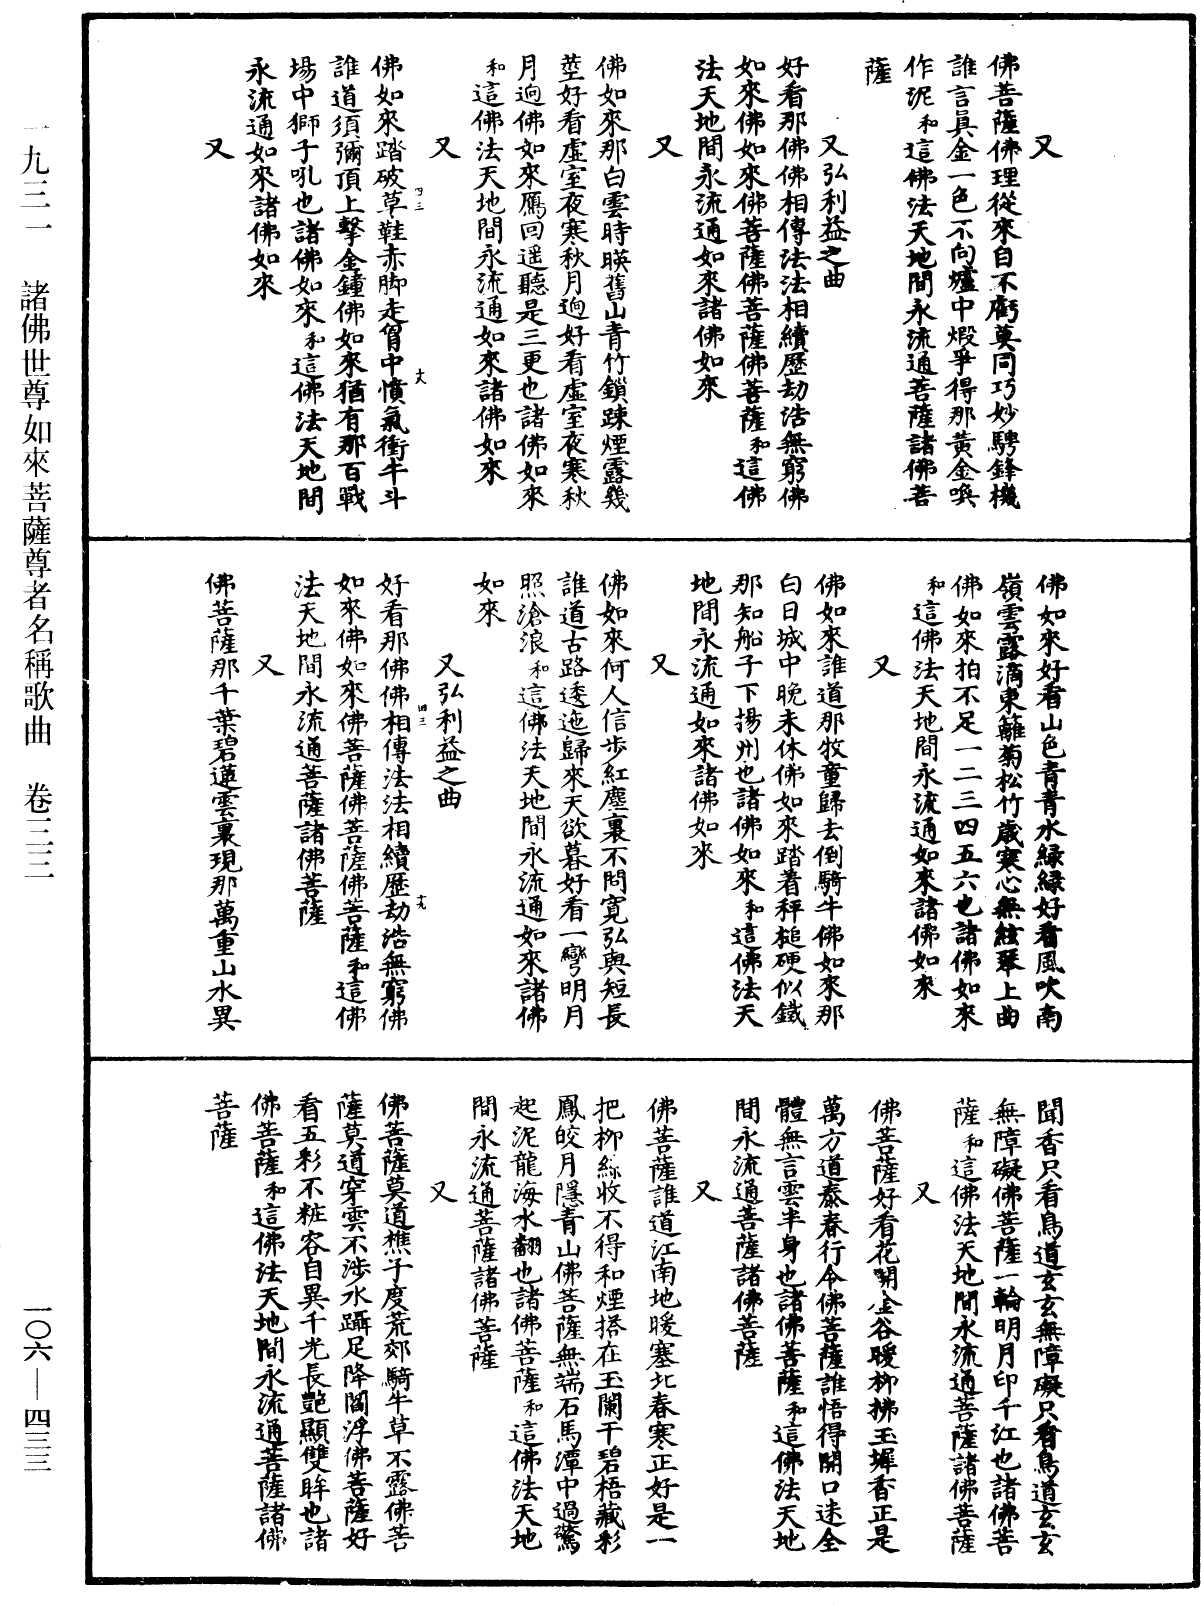 又
佛菩薩佛理從來自不虧莫同巧妙騁鋒機
誰言眞金一色不向爐中煅爭得那黃金喚
作泥和這佛法天地間永流通菩薩諸佛菩
薩
又弘利益之曲
好看那佛佛相傳法法相續歷劫浩無窮佛
如來佛如來佛菩薩佛菩薩佛菩薩和這佛
法天地間永流通如來諸佛如來
又
佛如來那白雲時暎舊山青竹鎖踈煙露幾
莖好看虛室夜寒秋月逈好看虛室夜寒秋
月逈佛如來鴈回遥聽是三更也諸佛如來
和這佛法天地間永流通如來諸佛如來
又
佛如來踏破草鞋赤脚走胷中憤氣衝牛斗
誰道須彌頂上擊金鐘佛如來猶有那百戰
場中獅子吼也諸佛如來和這佛法天地間
永流通如來諸佛如來
又
佛如來好看山色青青水緑緑好看風吹南
嶺雲露滴東籬菊松竹歲寒心無絃琴上曲
佛如來拍不足一二三四五六也諸佛如來
和這佛法天地間永流通如來諸佛如來
又
佛如來誰道那牧童歸去倒騎牛佛如來那
白日城中晚未休佛如來踏着秤槌硬似鐵
那知船子下揚州也諸佛如來和這佛法天
地間永流通如來諸佛如來
又
佛如來何人信步紅塵裏不問寬弘與短長
誰道古路逶迤歸來天欲暮好看一彎明月
照滄浪和這佛法天地間永流通如來諸佛
如來
又弘利益之曲
好看那佛佛相傳法法相續歷劫浩無窮佛
如來佛如來佛菩薩佛菩薩佛菩薩和這佛
法天地間永流通菩薩諸佛菩薩
又
佛菩薩那千葉碧蓮雲裏現那萬重山水異
聞香只看鳥道玄玄無障礙只看鳥道玄玄
無障礙佛菩薩一輪明月印千江也諸佛菩
薩和這佛法天地間永流通菩薩諸佛菩薩
又
佛菩薩好看花開金谷暖柳拂玉墀香正是
萬方道泰春行令佛菩薩誰悟得開口迷全
體無言雲半身也諸佛菩薩和這佛法天地
間永流通菩薩諸佛菩薩
又
佛菩薩誰道江南地暖塞北春寒正好是一
把柳絲收不得和煙搭在玉闌干碧梧藏彩
鳳皎月隱青山佛菩薩無端石馬潭中過驚
起泥龍海水翻也諸佛菩薩和這佛法天地
間永流通菩薩諸佛菩薩
又
佛菩薩莫道樵子度荒郊騎牛草不露佛菩
薩莫道穿雲不涉水躡足降閻浮佛菩薩好
看五彩不粧容自異千光長艷顯雙眸也諸
佛菩薩和這佛法天地間永流通菩薩諸佛
菩薩
一九三一 諸佛世尊如來菩薩尊者名稱歌曲 卷三三
一〇六—四三三